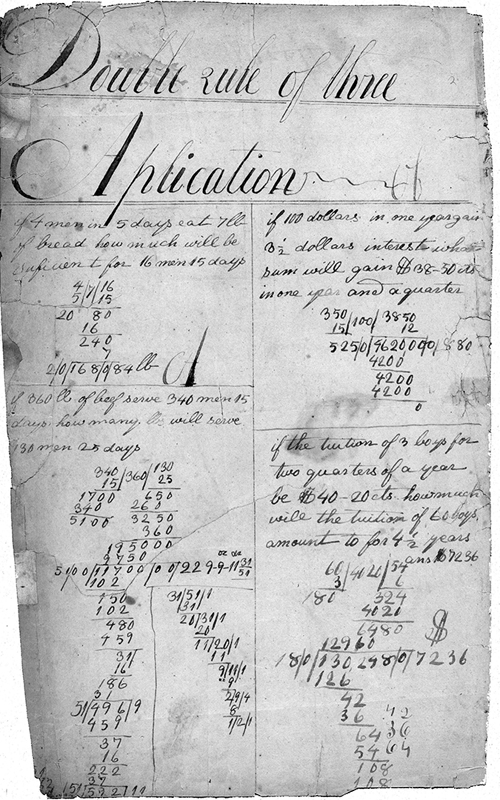 Double rule of three
Aplication
if 4 men in 5 days eat 7 lb
of bread how much will be
sufficient for 16 men 15 days
4 / 7 / 16
5 / 15
20 80
16
240
7
2/0/168/0/84 lb
if 360 lb of beef serve 340 men 15
days how many lbs will serve
130 men 25 days
340 /360/ 130
15 25
1700 650
340 260
5100 3250
360
195000
9750
102
150
102
480
459
31
16
186
31
51/496/9
459
37
16
222
37
31/51/1
31
20/31/1
20
11/20/1
11
9/11/1
9
2/9/4
8
1/2/1
if 100 dollars in one year gain
3 1/2 dollars interest what
sum will gain $38-50 cts
in one year and a quarter
350 /100/ 3850
15 12
5250/4620000/880
4200
4200
4200
0
if the tuition of 3 boys for
two quarters of a year
be $40-20 cts. how much
will the tuition of 60 boys
amount to for 4 1/2 years
ans $7236
60 /4020/ 54
3 6
180 324
4020
6480
12960
18/0/130248/0/7236
126
42
36
64
54
108
108
42
36
64
$